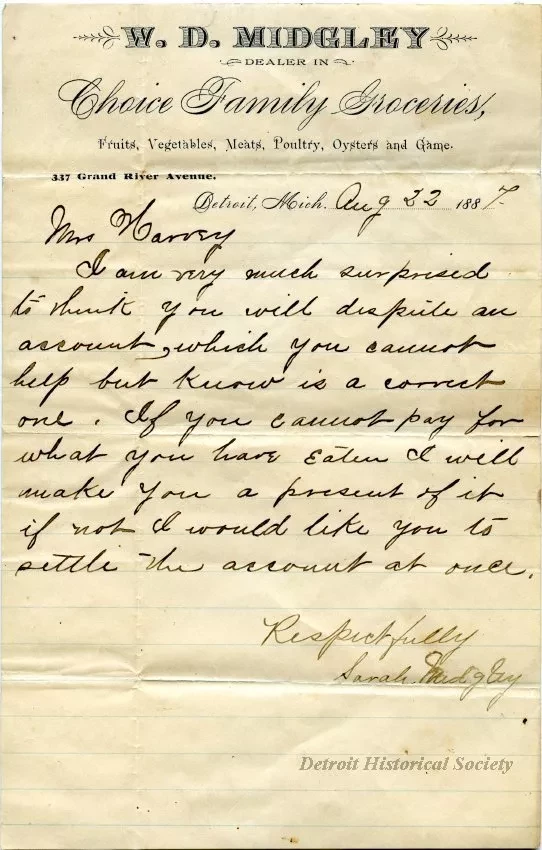 W. D. MIDGLEY
DEALER IN
Choice Family Groceries,
Fruits, Vegetables, Meats, Poultry, Oysters and Game.
337 Grand River Avenue.
Detroit, Mich. Aug 22 1887.
Mrs Harvey
I am very much surprised
to think you will dispute an
account, which you cannot
help but know is a correct
one. If you cannot pay for
what you have Eaten I will
make you a present of it
if not I would like you to
settle the account at once.
Respectfully
Sarah Midgley
Detroit Historical Society